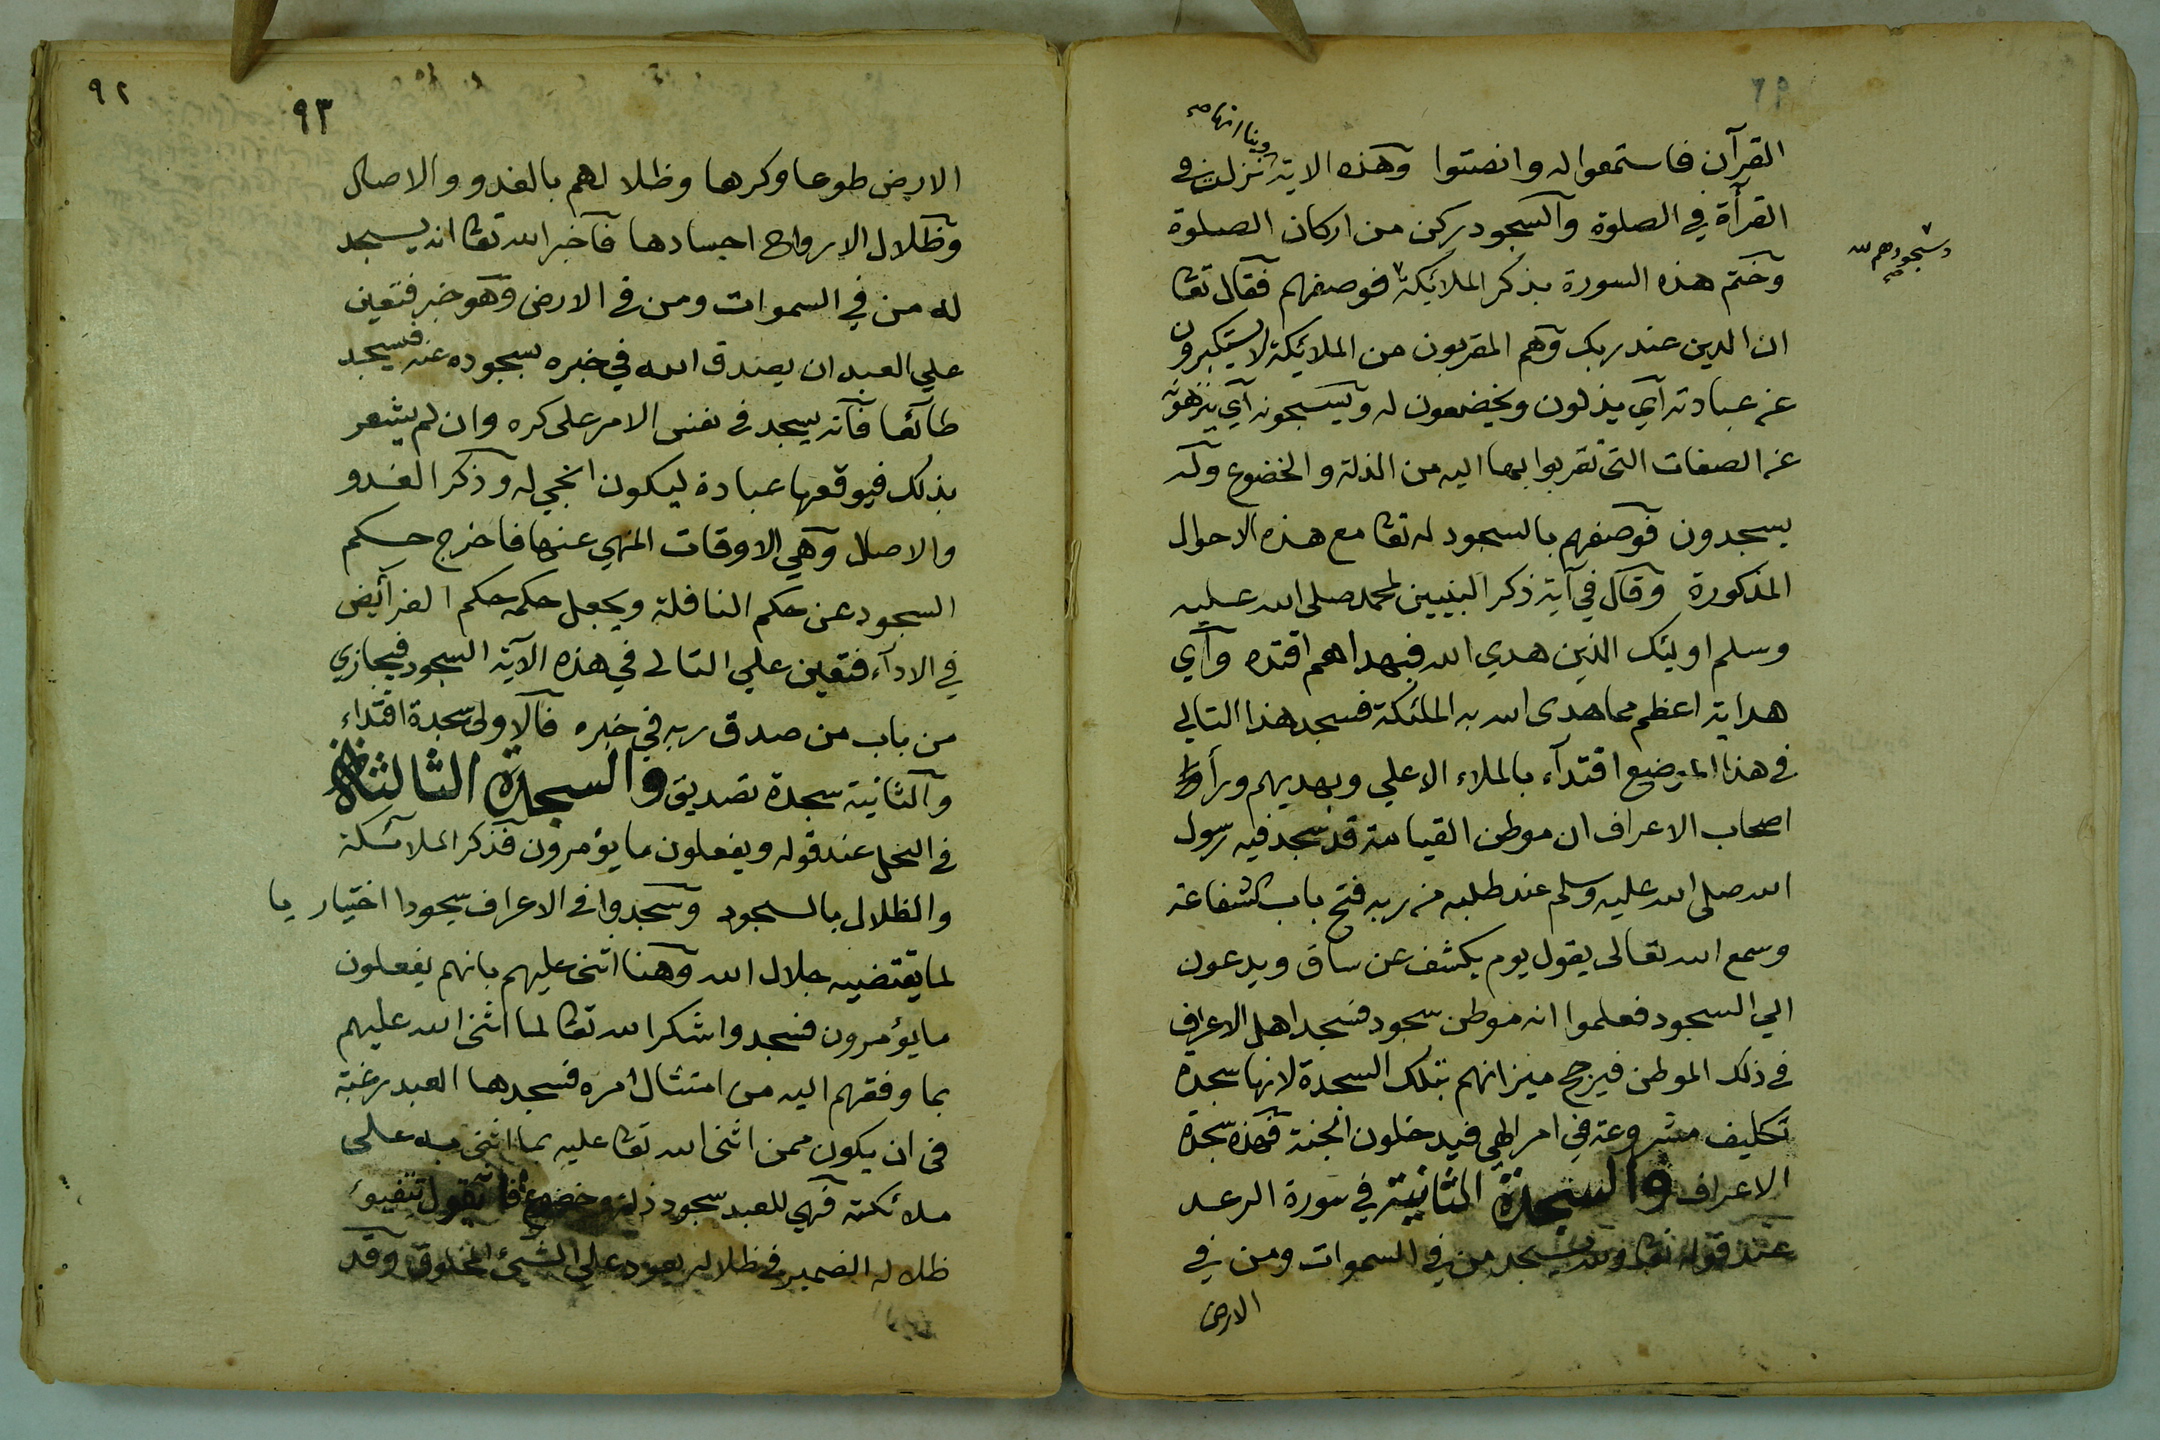 القرآن فاستمعوا له وانصتوا وهذه الاية نزلت في
القرأة في الصلوة والسجود ركن من اركان الصلوة
وختم هذه السورة بذكر الملائكة فوصفهم فقال تعا
وسجودهم لله
ان الذين عند ربك وهم المقربون من الملائكة لا يستكبرون
عن عبادته اي يذلون ويخضعون له ويسبحونه اي ينزهونه
عن الصفات التي تقربوا بها اليه من الذلة والخضوع وله
يسجدون فوصفهم بالسجود له تعا مع هذه الاحوال
المذكورة وقال في آية ذكر النبيين لمحمد صلى الله عليه
وسلم اوليك الذين هدي الله فبهداهم اقتده وأي
هداية اعظم مما هدى الله به الملئكة فسجد هذا التالي
في هذا الموضع اقتدآء بالملاء الاعلي وبهديهم ورأوا
اصحاب الاعراف ان موطن القيامة قد سجد فيه رسول
الله صلى الله عليه وسلم عند طلبه من ربه فتح باب الشفاعة
وسمع الله تعالى يقول يوم يكشف عن ساق ويدعون
الي السجود فعلموا انه موطن سجود فسجد اهل الاعراف
في ذلك الموطن فيرجح ميزانهم بتلك السجدة لانها سجدة
تكليف مشروعة عن امر الهي فيدخلون الجنة فهذه سجدة
الاعراف والسجدة الثانية في سورة الرعد
عند قوله تعا ولله يسجد من في السموات ومن في
الارض
٩٢
٩٣
الارض طوعا وكرها وظلالهم بالغدو والاصال
وظلال الارواح اجسادها فاخبر الله تعا انه يسجد
له من في السموات ومن في الارض وهو خبر فتعين
علي العبد ان يصدق الله في خبره بسجوده عنه فسيجد
طائعا فانه يسجد في نفس الامر على كره وان لم يشعر
بذلك فيوقعها عبادة ليكون انجي له وذكر الغدو
والاصال وهي الاوقات المنهي عنها فاخرج حكم
السجود عن حكم النافلة ويجعل حكمه حكم الفرائض
في الادآء فتعين علي التالي في هذه الآية السجود فيجازي
من باب من صدق ربه في خبره فالاولى سجدة اقتداء
والثانية سجدة تصديق والسجدة الثالثة
في النحل عند قوله ويفعلون ما يؤمرون فذكر الملائكة
والظلال بالسجود وسجدوا في الاعراف سجودا اختياريا
لما يقتضيه جلال الله وهنا اثنى عليهم بانهم يفعلون
ما يؤمرون فسجدوا شكرا لله تعا لما اثنى الله عليهم
بما وفقهم اليه من امتثال امره فسجدها العبد رغبة
في ان يكون ممن اثنى الله تعا عليه بما اثنى به على
ملائكته فهي للعبد سجود ذلة وخضوع يقول تتفيؤ
ظلاله الضمير في ظلاله يعود علي الشيئ المخلوق وقد